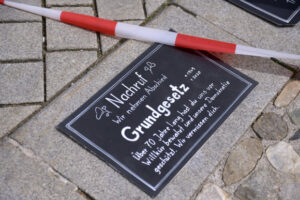 Nachruf
wir nehmen Abschied
* 1949
† 2020
Grundgesetz
Über 70 Jahre lang hast du uns vor
Willkür bewahrt und unsere Demokratie
geschützt. Wir vermissen dich.